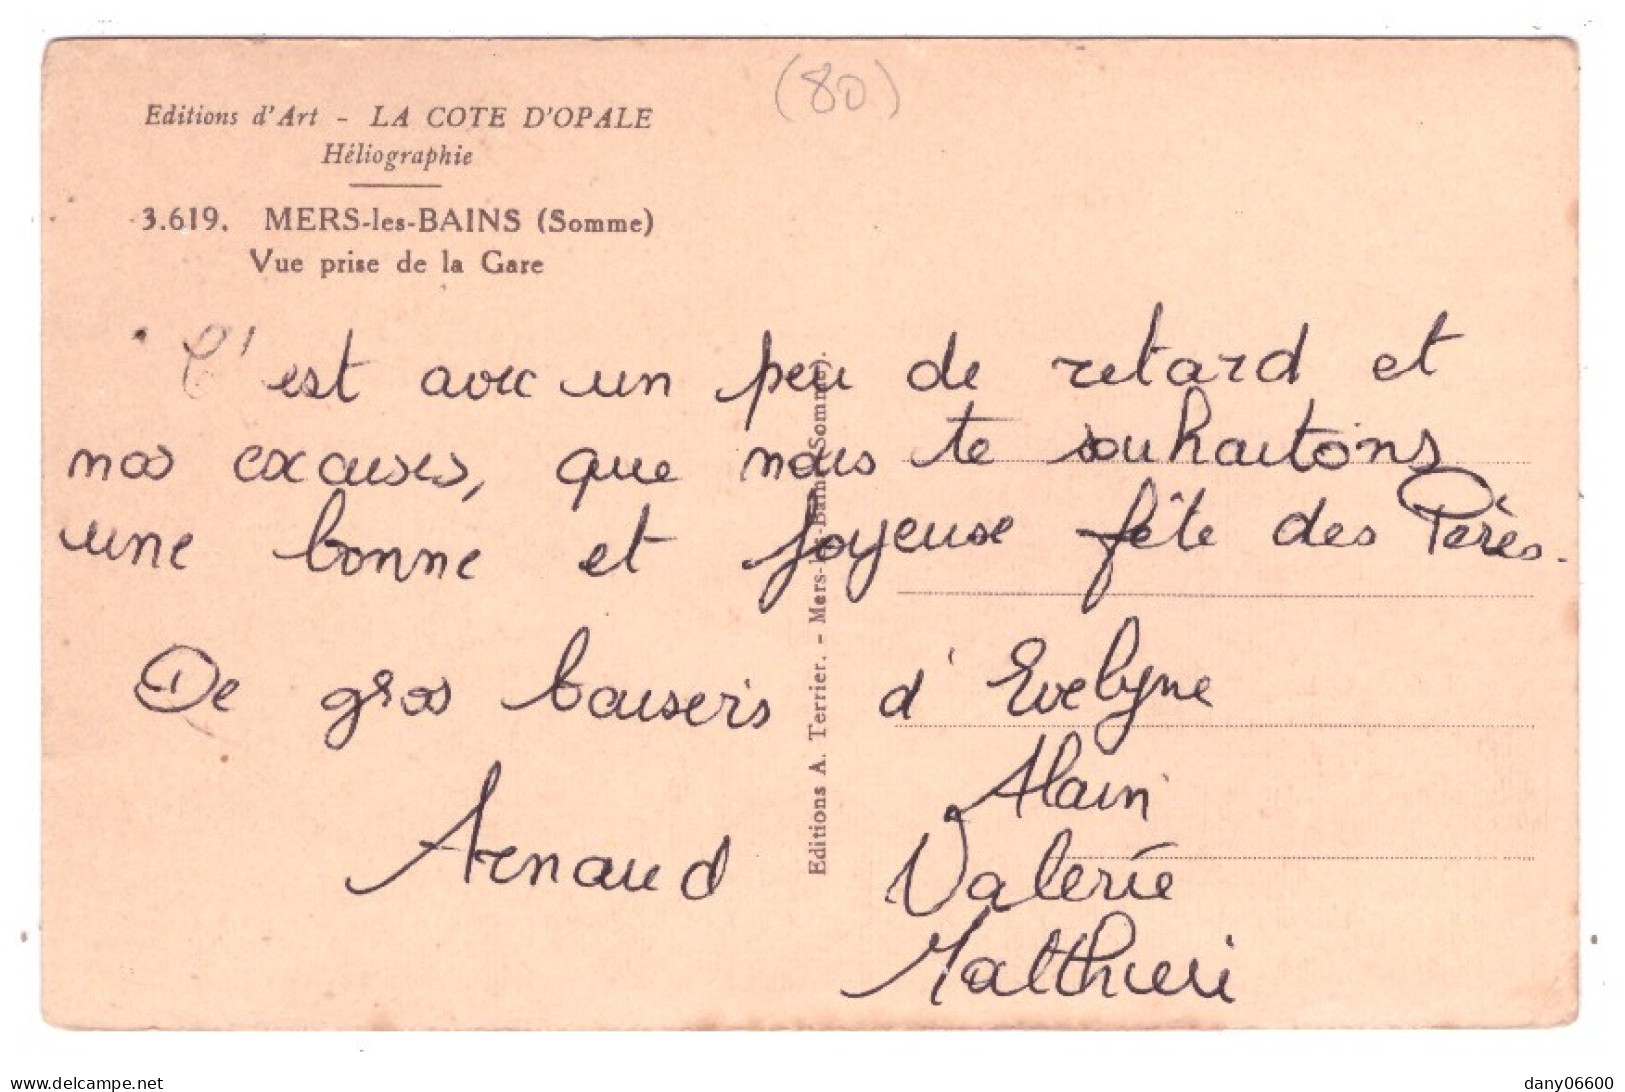 (80)
Editions d'Art - LA COTE D'OPALE
Héliographie
3.619. MERS-les-BAINS (Somme)
Vue prise de la Gare
C'est avec un peu de retard et
nos excuses, que nous te souhaitons
une bonne et joyeuse fête des Pères.
De gros baisers d'Evelyne
Alain
Arnaud Valérie
Matthieu
Editions A. Terrier. - Mers-les-Bains (Somme).
dany06600